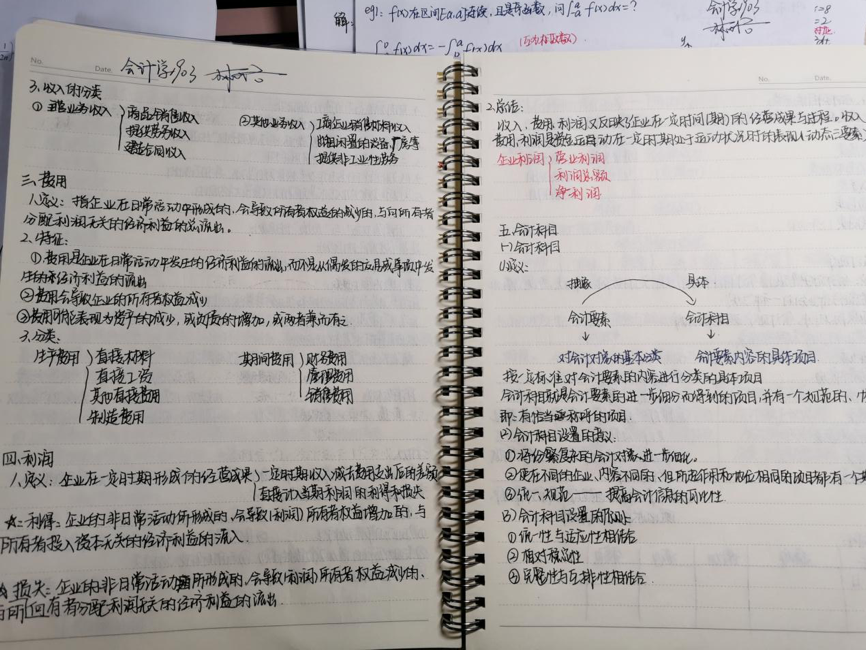 解: eg1: f(x)在区间[-a,a]连续,且是奇函数,问∫f(x)dx=?
会计学903
No.
Date.
会计学903
3.收入的分类
①主营业务收入
商品销售收入
提供劳务收入
建造合同收入
②其他业务收入
工商企业销售材料收入
提供非工业性劳务
三.费用
1.定义:指企业在日常活动中形成的,会导致所有者权益的减少的,与向所有者
分配利润无关的经济利益的总流出。
2.特征:
①费用是企业在日常活动中发生的经济利益的流出,而不是从偶发的交易或事项中发
生的经济利益的流出
②费用会导致企业的所有者权益减少
③费用可能表现为资产的减少,或负债的增加,或两者兼而有之
3.分类:
生产费用
直接材料
直接工资
其他直接费用
制造费用
期间费用
财务费用
管理费用
销售费用
四.利润
1.定义:企业在一定时期形成的经营成果
一定时期收入减去费用支出后的差额
直接计入当期利润的利得和损失
☆:利得:企业的非日常活动所形成的,会导致(利润)所有者权益增加的,与
所有者投入资本无关的经济利益的流入.
☆损失:企业的非日常活动所形成的,会导致(利润)所有者权益减少的、
与所向有者分配利润无关的经济利益的流出.
No.
Date.
2.总结:
收入、费用、利润又反映了企业在一定时间(期)的经营成果与进程。收入、
费用、利润是资金运动在一定时期处于运动状况时的表现(动态三要素)
企业利润
营业利润
利润总额
净利润
五.会计科目
(一)会计科目
(1)定义:
抽象
具体
会计要素
会计科目
对会计对象的基本分类
会计要素内容的具体项目
按一定标准对会计要素的内容进行分类的具体项目
会计科目就是会计要素的进一步细分而得到的项目,并有一个规范的、
即:有恰当称呼的项目.
(2)会计科目设置的意义:
①将纷繁复杂的会计对象进一步细化。
②使在不同的企业、内容不同的,但所起作用和地位相同的项目都有一个
③统一规范——提高会计信息的可比性
(3)会计科目设置的原则:
①统一性与适应性相结合
②相对稳定性
③完整性与互排性相结合.